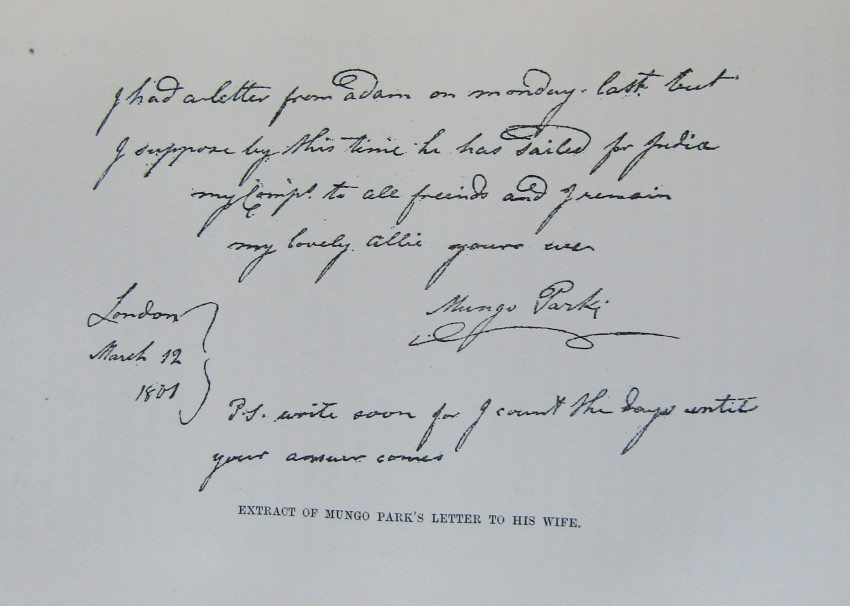 I had a letter from adam on monday last but
I suppose by this time he has sailed for India
my Compt. to all freinds and I remain
my lovely Allie yours ever
Mungo Park
London
March 12
1801
P.S. write soon for I count the days until
your answer comes
EXTRACT OF MUNGO PARK'S LETTER TO HIS WIFE.